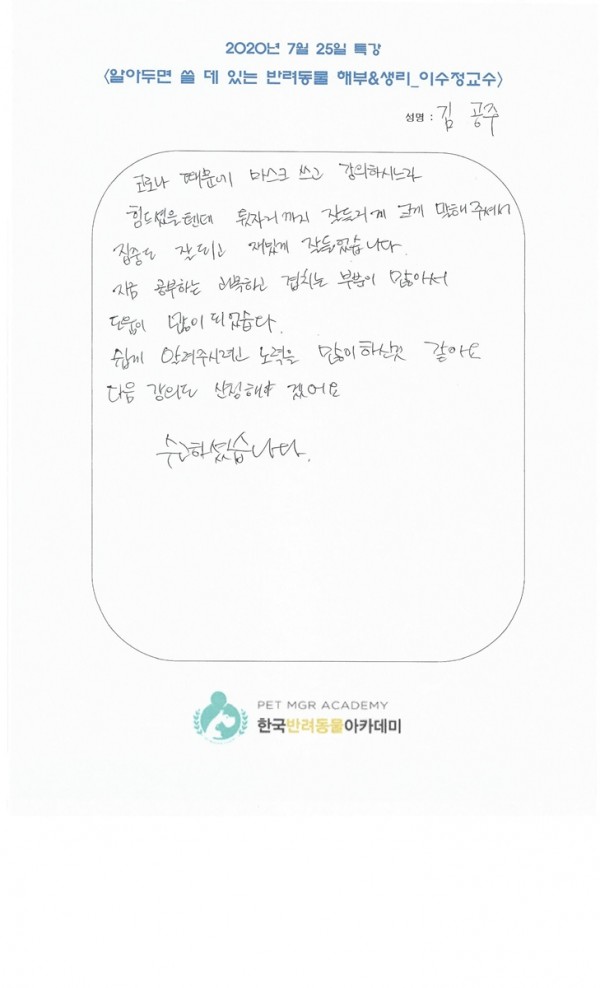 2020년 7월 25일 특강
<알아두면 쓸 데 있는 반려동물 해부&생리_이수정교수>
성명 : 김 공주
코로나 때문에 마스크 쓰고 강의하시느라
힘드셨을텐데 뒷자리까지 잘들리게 크게 말해주셔서
집중도 잘되고 재밌게 잘들었습니다.
지금 공부하는 과목하고 겹치는 부분이 많아서
도움이 많이 되었습다.
쉽게 알려주시려고 노력을 많이하신것 같아요
다음 강의도 신청해야 겠어요
수고하셨습니다.
PET MGR ACADEMY
한국반려동물아카데미